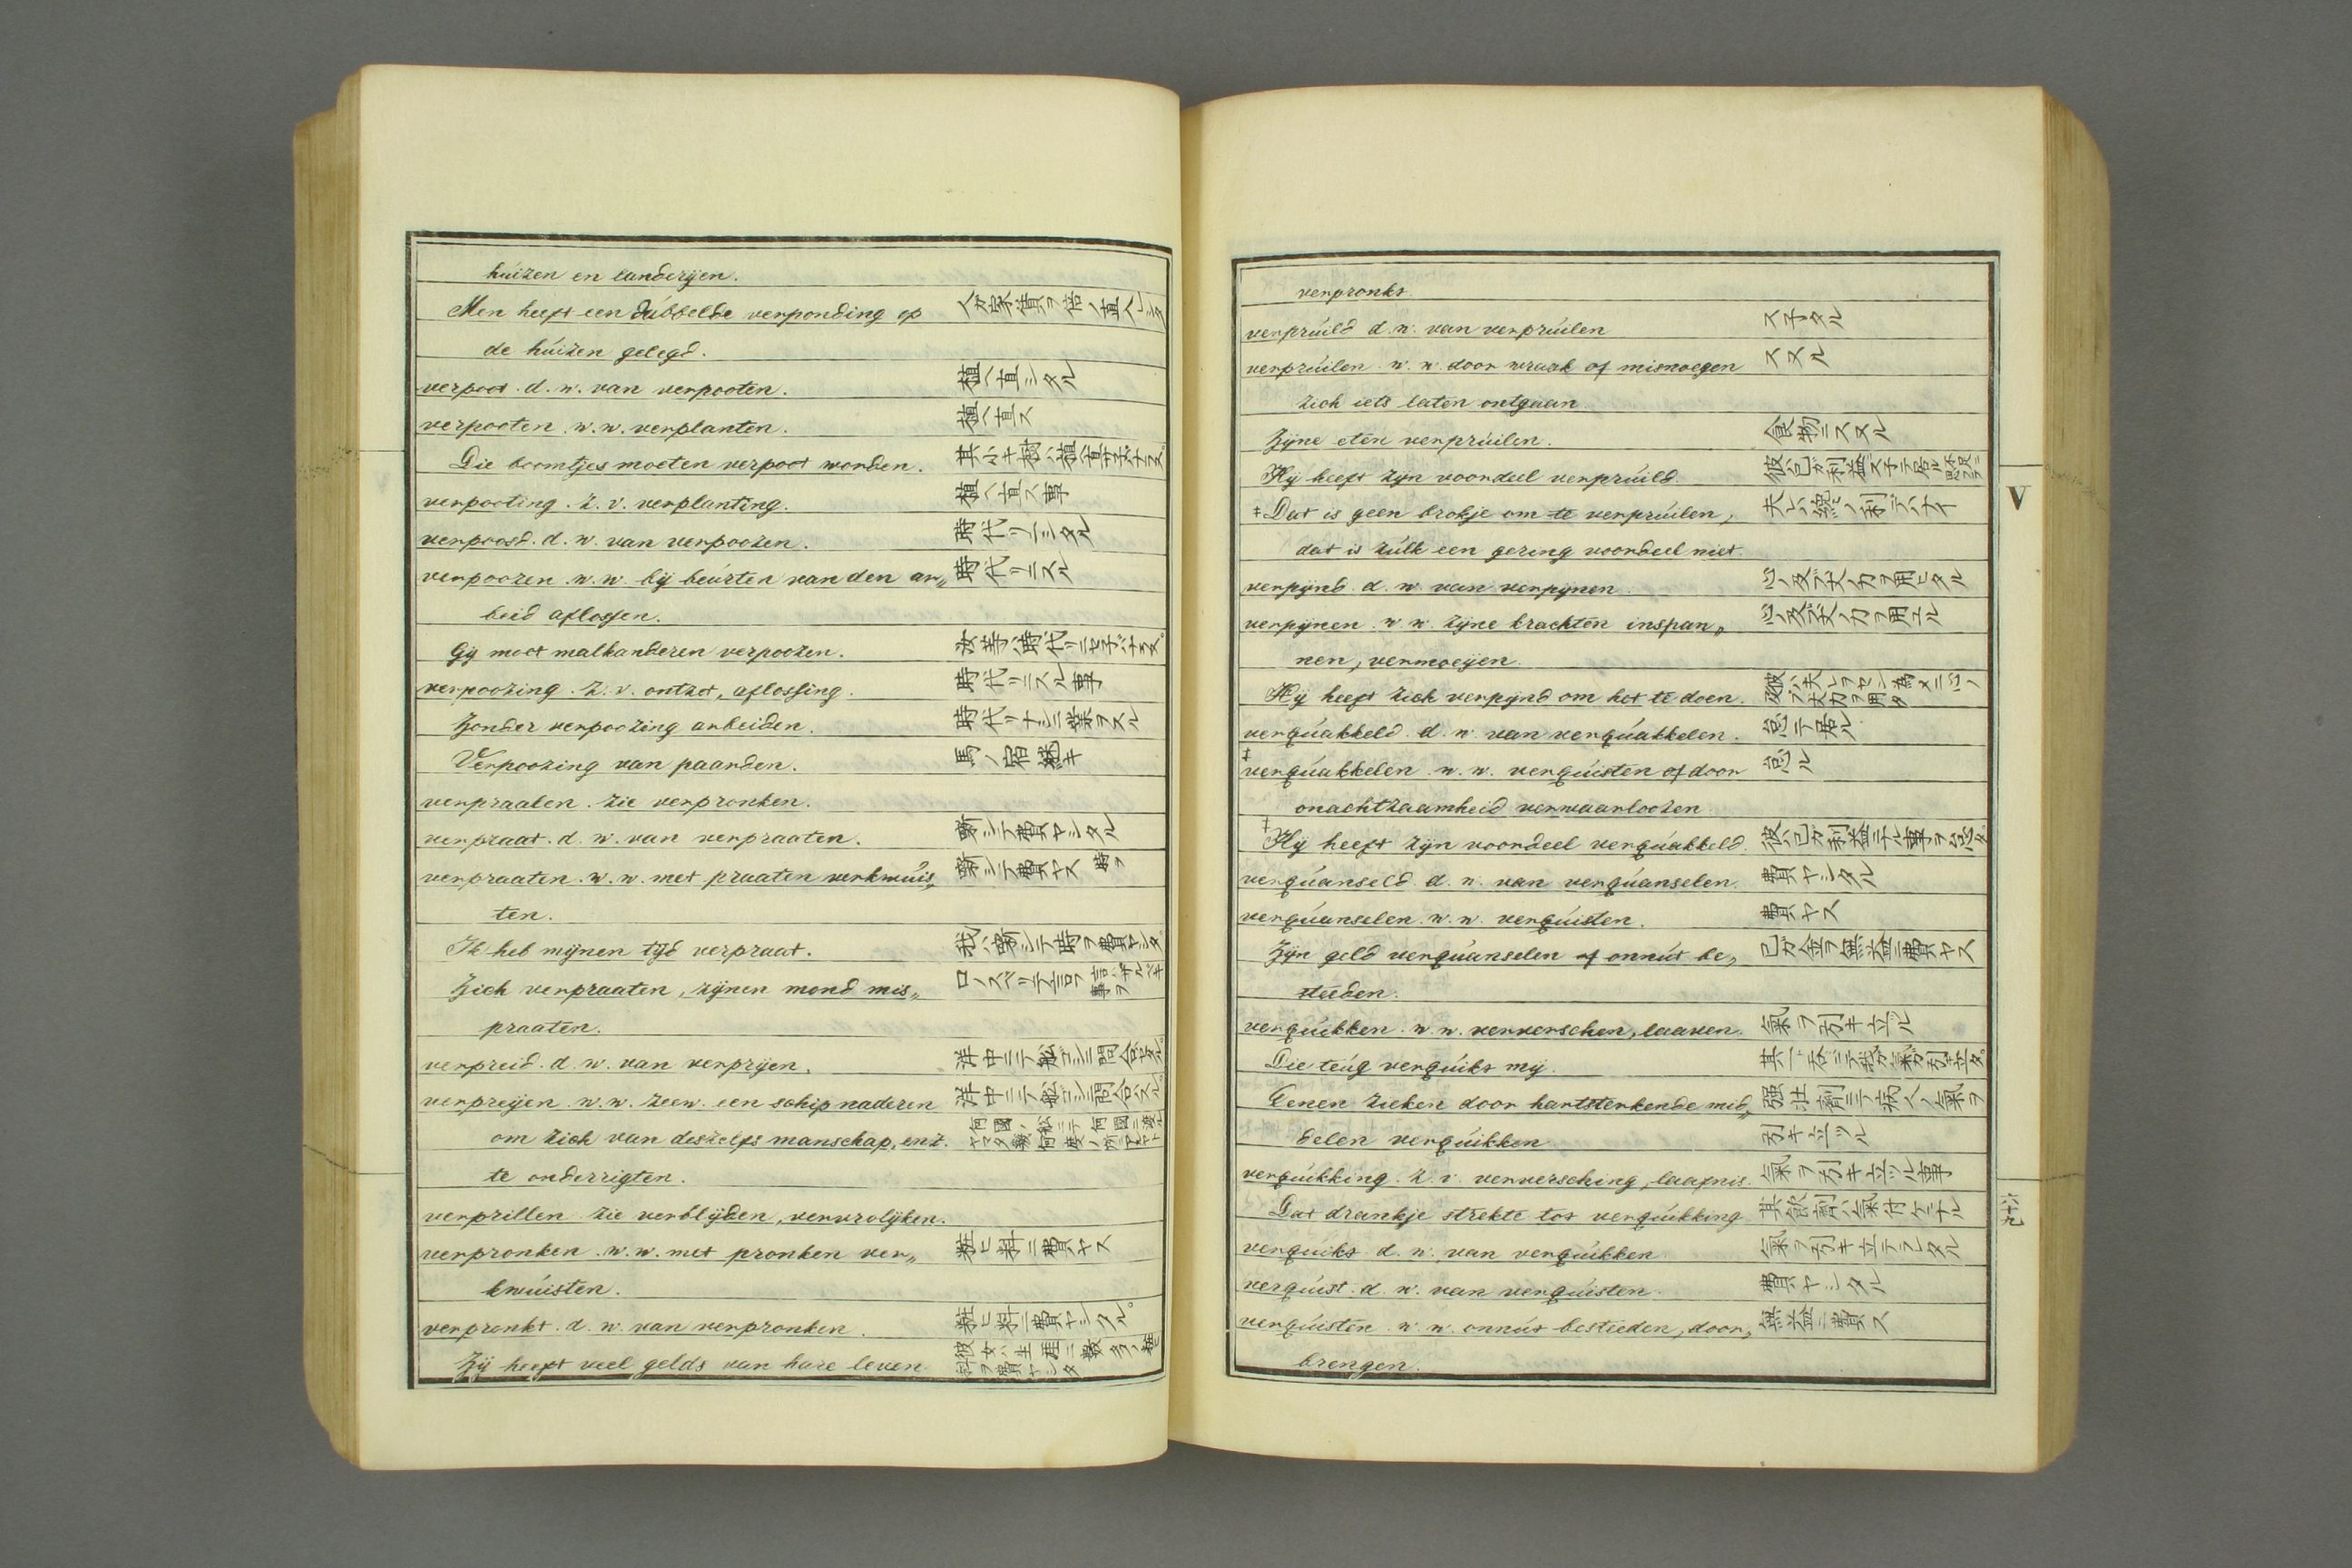 huizen en landerijen.
Men heeft een dubbelde verponding op 人ガ家賃ヲ倍ノ直ヘシタ
de huizen gelegd.
verpoot. d. w. van verpooten. 植ヘ直シタル
verpooten. w. w. verplanten. 植ヘ直ス
Die boomtjes moeten verpoot worden. 其小キ樹ハ植ヘ直サ子バナラヌ
verpooting. z. v. verplanting. 植ヘ直ス事
verpoosd. d. w. van verpoozen. 時代リニシタル
verpoozen. w. w. bij beurten van den ar„ 時代リニスル
beid aflossen.
Gij moet malkanderen verpoozen. 汝等ハ時代リニセ子バナラヌ
verpoozing. z. v. ontzet, aflossing. 時代リニスル事
Zonder verpoozing arbeiden. 時代リナシニ業ヲスル
Verpoozing van paarden. 馬ノ宿継キ
verpraalen. zie verpronken.
verpraat. d. w. van verpraaten. 噺シテ費ヤシタル
verpraaten. w. w. met praaten verkwuis„ 噺シテ費ヤス 時ヲ
ten.
Ik heb mijnen tijd verpraat. 我ハ噺シテ時ヲ費ヤシタ
Zich verpraaten, zijnen mond mis„ 口ノスベリテ言フ 言ハザルベキ事ヲ
praaten.
verpreid. d. w. van verprijen. 洋中ニテ舩ゴシニ問合セタル
verpreijen. w. w. zeew. een schip naderen 洋中ニテ舩ゴシニ問合ハスル
om zich van deszelfs manschap, enz.
te onderrigten.
verprillen zie verblijden, vervrolijken.
verpronken. w. w. met pronken ver„ 粧ヒ料ニ費ヤス
kwuisten.
verpronkt. d. w. van verpronken. 粧ヒ料ニ費ヤシタル
Zij heeft veel gelds van hare leven 彼女ハ生涯ニ数多ノ粧料ヲ費ヤシタ
verpronkt.
verpruild d. w. van verpruilen ス子タル
verpruilen w. w. door wraak of misnoegen スヌル
zich iets laten ontgaan
Zijne eten verpruilen. 食物ニスヌル
Hij heeft zijn voordeel verpruild. 彼ハ己ガ利益ス子テ居ル
‡ Dat is geen brokje om te verpruilen, 夫レハ纔ノ利デハナイ
dat is zulk een gering voordeel niet
verpijnd. d. w. van verpijnen 心ノ及ブ丈ノ力ヲ用ヒタル
verpijnen. w. w. zijne krachten inspan„ 心ノ及ブ丈ノ力ヲ用ユル
nen, vermoeijen.
Hij heeft zich verpijnd om het te doen. 彼ハ夫レヲセン為メニ心ノ及ブ丈力ヲ用タ
verquakkeld. d. w. van verquakkelen. 怠テ居ル
‡ verquakkelen. w. w. verquisten of door 怠ル
onachtzaamheid verwaarloozen
‡ Hij heeft zijn voordeel verquakkeld. 彼ハ己ガ利益ニナル事ヲ怠タ
verquanseld. d. w. van verquanselen. 費ヤシタル
verquanselen. w. w. verquisten. 費ヤス
Zijn geld verquanselen of onnut be„ 己ガ金ヲ無益ニ費ヤス
steeden.
verquikken. w. w. ververschen, laaven. 氣ヲ引キ立ツル
Die teug verquikt mij.
Eenen zieken door hartsterkende mid„ 强壮劑ニテ病人ノ氣ヲ
delen verquikken 引キ立ツル
verquikking. z. v. ververschinq, laafnis. 氣ヲ引キ立ツル事
Dat drankje strekte tot verquikking 其飲劑ハ氣付ケニナル
verquikt d. w. van verquikken 氣ヲ引キ立テタル
verquist. d. w. van verquisten. 費ヤシタル
verquisten. w. w. onnut besteeden, door„ 無益ニ費ス
brengen.
V
六十九